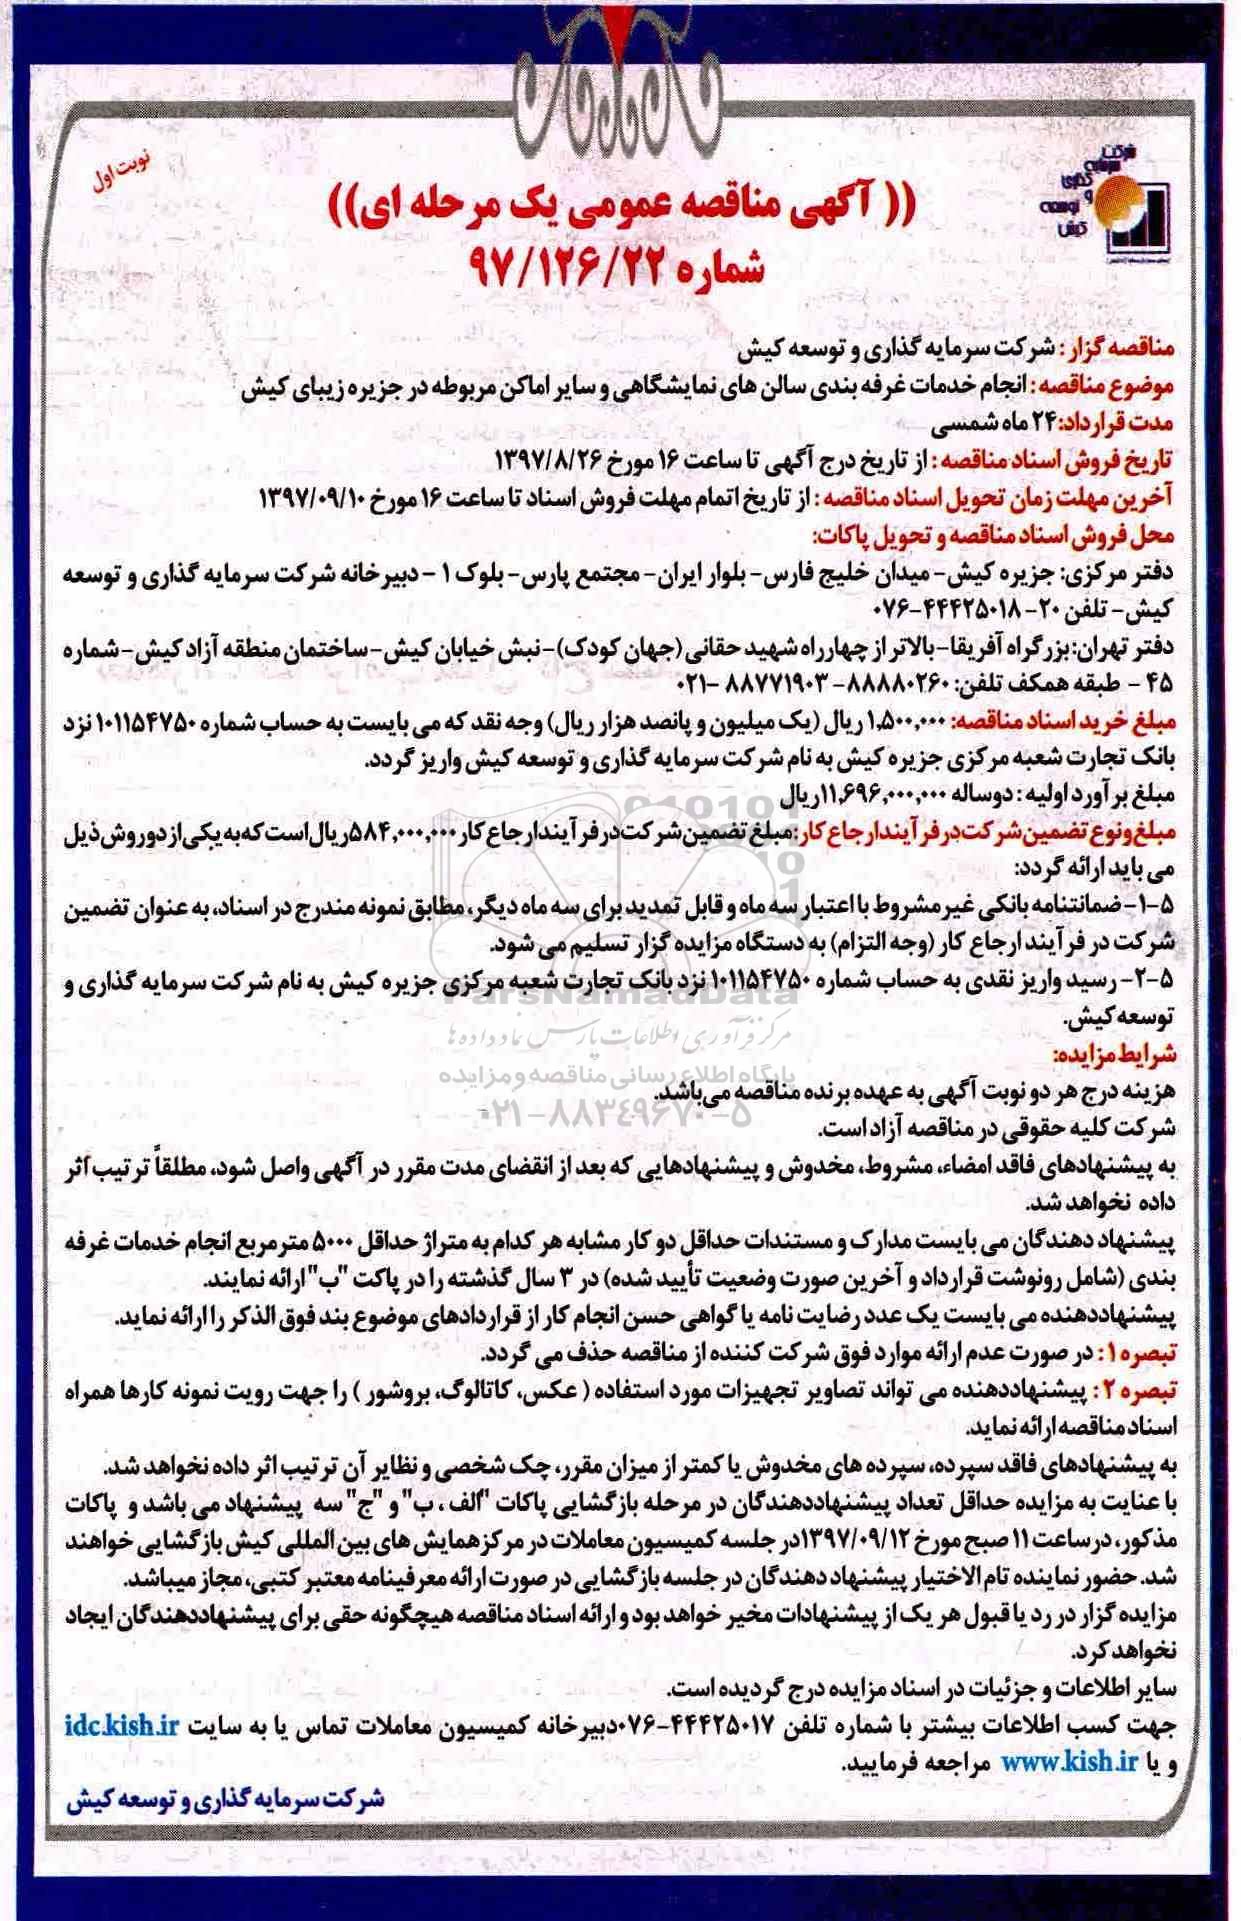 نوبت اول
شرکت
سرمایه
گذاری
و
توسعه
کیش
(( آگهی مناقصه عمومی یک مرحله ای))
شماره ۹۷/۱۲۶/۲۲
مناقصه گزار : شرکت سرمایه گذاری و توسعه کیش
موضوع مناقصه : انجام خدمات غرفه بندی سالن های نمایشگاهی و سایر اماکن مربوطه در جزیره زیبای کیش
مدت قرارداد:۲۴ ماه شمسی
تاریخ فروش اسناد مناقصه : از تاریخ درج آگهی تا ساعت ۱۶ مورخ ۱۳۹۷/۸/۲۶
آخرین مهلت زمان تحویل اسناد مناقصه : از تاریخ اتمام مهلت فروش اسناد تا ساعت ۱۶ مورخ ۱۳۹۷/۰۹/۱۰
محل فروش اسناد مناقصه و تحویل پاکات:
دفتر مرکزی: جزیره کیش- میدان خلیج فارس- بلوار ایران- مجتمع پارس- بلوک ۱ - دبیرخانه شرکت سرمایه گذاری و توسعه
کیش- تلفن ۲۰- ۴۴۴۲۵۰۱۸-۰۷۶
دفتر تهران:بزرگراه آفریقا-بالاتر از چهارراه شهید حقانی (جهان کودک)-نبش خیابان کیش-ساختمان منطقه آزاد کیش-شماره
۴۵ - طبقه همکف تلفن: ۸۸۸۸۰۲۶۰- ۸۸۷۷۱۹۰۳ -۰۲۱
مبلغ خرید اسناد مناقصه: ۱,۵۰۰,۰۰۰ ریال (یک میلیون و پانصد هزار ریال) وجه نقد که می بایست به حساب شماره ۱۰۱۱۵۴۷۵۰ نزد
بانک تجارت شعبه مرکزی جزیره کیش به نام شرکت سرمایه گذاری و توسعه کیش واریز گردد.
مبلغ برآورد اولیه : دوساله ۱۱,۶۹۶,۰۰۰,۰۰۰ریال
مبلغ و نوع تضمین شرکت در فرآیند ارجاع کار:مبلغ تضمین شرکت در فرآیند ارجاع کار ۵۸۴,۰۰۰,۰۰۰ریال است که به یکی از دو روش ذیل
می باید ارائه گردد:
۵-۱-ضمانتنامه بانکی غیر مشروط با اعتبار سه ماه و قابل تمدید برای سه ماه دیگر، مطابق نمونه مندرج در اسناد، به عنوان تضمین
شرکت در فرآیند ارجاع کار (وجه التزام) به دستگاه مزایده گزار تسلیم می شود.
۵-۲- رسید واریز نقدی به حساب شماره ۱۰۱۱۵۴۷۵۰ نزد بانک تجارت شعبه مرکزی جزیره کیش به نام شرکت سرمایه گذاری و
ParsNamadData
توسعه کیش.
مرکز فرآوری اطلاعات پارس نماد داده ها
شرایط مزایده:
پایگاه اطلاع رسانی مناقصه و مزایده
هزینه درج هر دو نوبت آگهی به عهده برنده مناقصه می‌باشد.
۰۲۱-۸۸۳۴۹۶۷۰-۵
شرکت کلیه حقوقی در مناقصه آزاد است.
به پیشنهادهای فاقد امضاء، مشروط، مخدوش و پیشنهادهایی که بعد از انقضای مدت مقرر در آگهی واصل شود، مطلقاً ترتیب اثر
داده نخواهد شد.
پیشنهاد دهندگان می بایست مدارک و مستندات حداقل دو کار مشابه هر کدام به متراژ حداقل ۵۰۰۰ مترمربع انجام خدمات غرفه
بندی (شامل رونوشت قرارداد و آخرین صورت وضعیت تأیید شده) در ۳ سال گذشته را در پاکت "ب" ارائه نمایند.
پیشنهاددهنده می بایست یک عدد رضایت نامه یا گواهی حسن انجام کار از قراردادهای موضوع بند فوق الذکر را ارائه نماید.
تبصره ۱ : در صورت عدم ارائه موارد فوق شرکت کننده از مناقصه حذف می گردد.
تبصره ۲ : پیشنهاددهنده می تواند تصاویر تجهیزات مورد استفاده ( عکس، کاتالوگ، بروشور ) را جهت رویت نمونه کارها همراه
اسناد مناقصه ارائه نماید.
به پیشنهادهای فاقد سپرده، سپرده های مخدوش یا کمتر از میزان مقرر، چک شخصی و نظایر آن ترتیب اثر داده نخواهد شد.
با عنایت به مزایده حداقل تعداد پیشنهاددهندگان در مرحله بازگشایی پاکات "الف ، ب" و "ج" سه پیشنهاد می باشد و پاکات
مذکور، در ساعت ۱۱ صبح مورخ ۱۳۹۷/۰۹/۱۲در جلسه کمیسیون معاملات در مرکز همایش های بین المللی کیش بازگشایی خواهند
شد. حضور نماینده تام الاختیار پیشنهاد دهندگان در جلسه بازگشایی در صورت ارائه معرفینامه معتبر کتبی، مجاز میباشد.
مزایده گزار در رد یا قبول هر یک از پیشنهادات مخیر خواهد بود و ارائه اسناد مناقصه هیچگونه حقی برای پیشنهاددهندگان ایجاد
نخواهد کرد.
سایر اطلاعات و جزئیات در اسناد مزایده درج گردیده است.
جهت کسب اطلاعات بیشتر با شماره تلفن ۴۴۴۲۵۰۱۷-۰۷۶دبیرخانه کمیسیون معاملات تماس یا به سایت idc.kish.ir
و یا www.kish.ir مراجعه فرمایید.
شرکت سرمایه گذاری و توسعه کیش